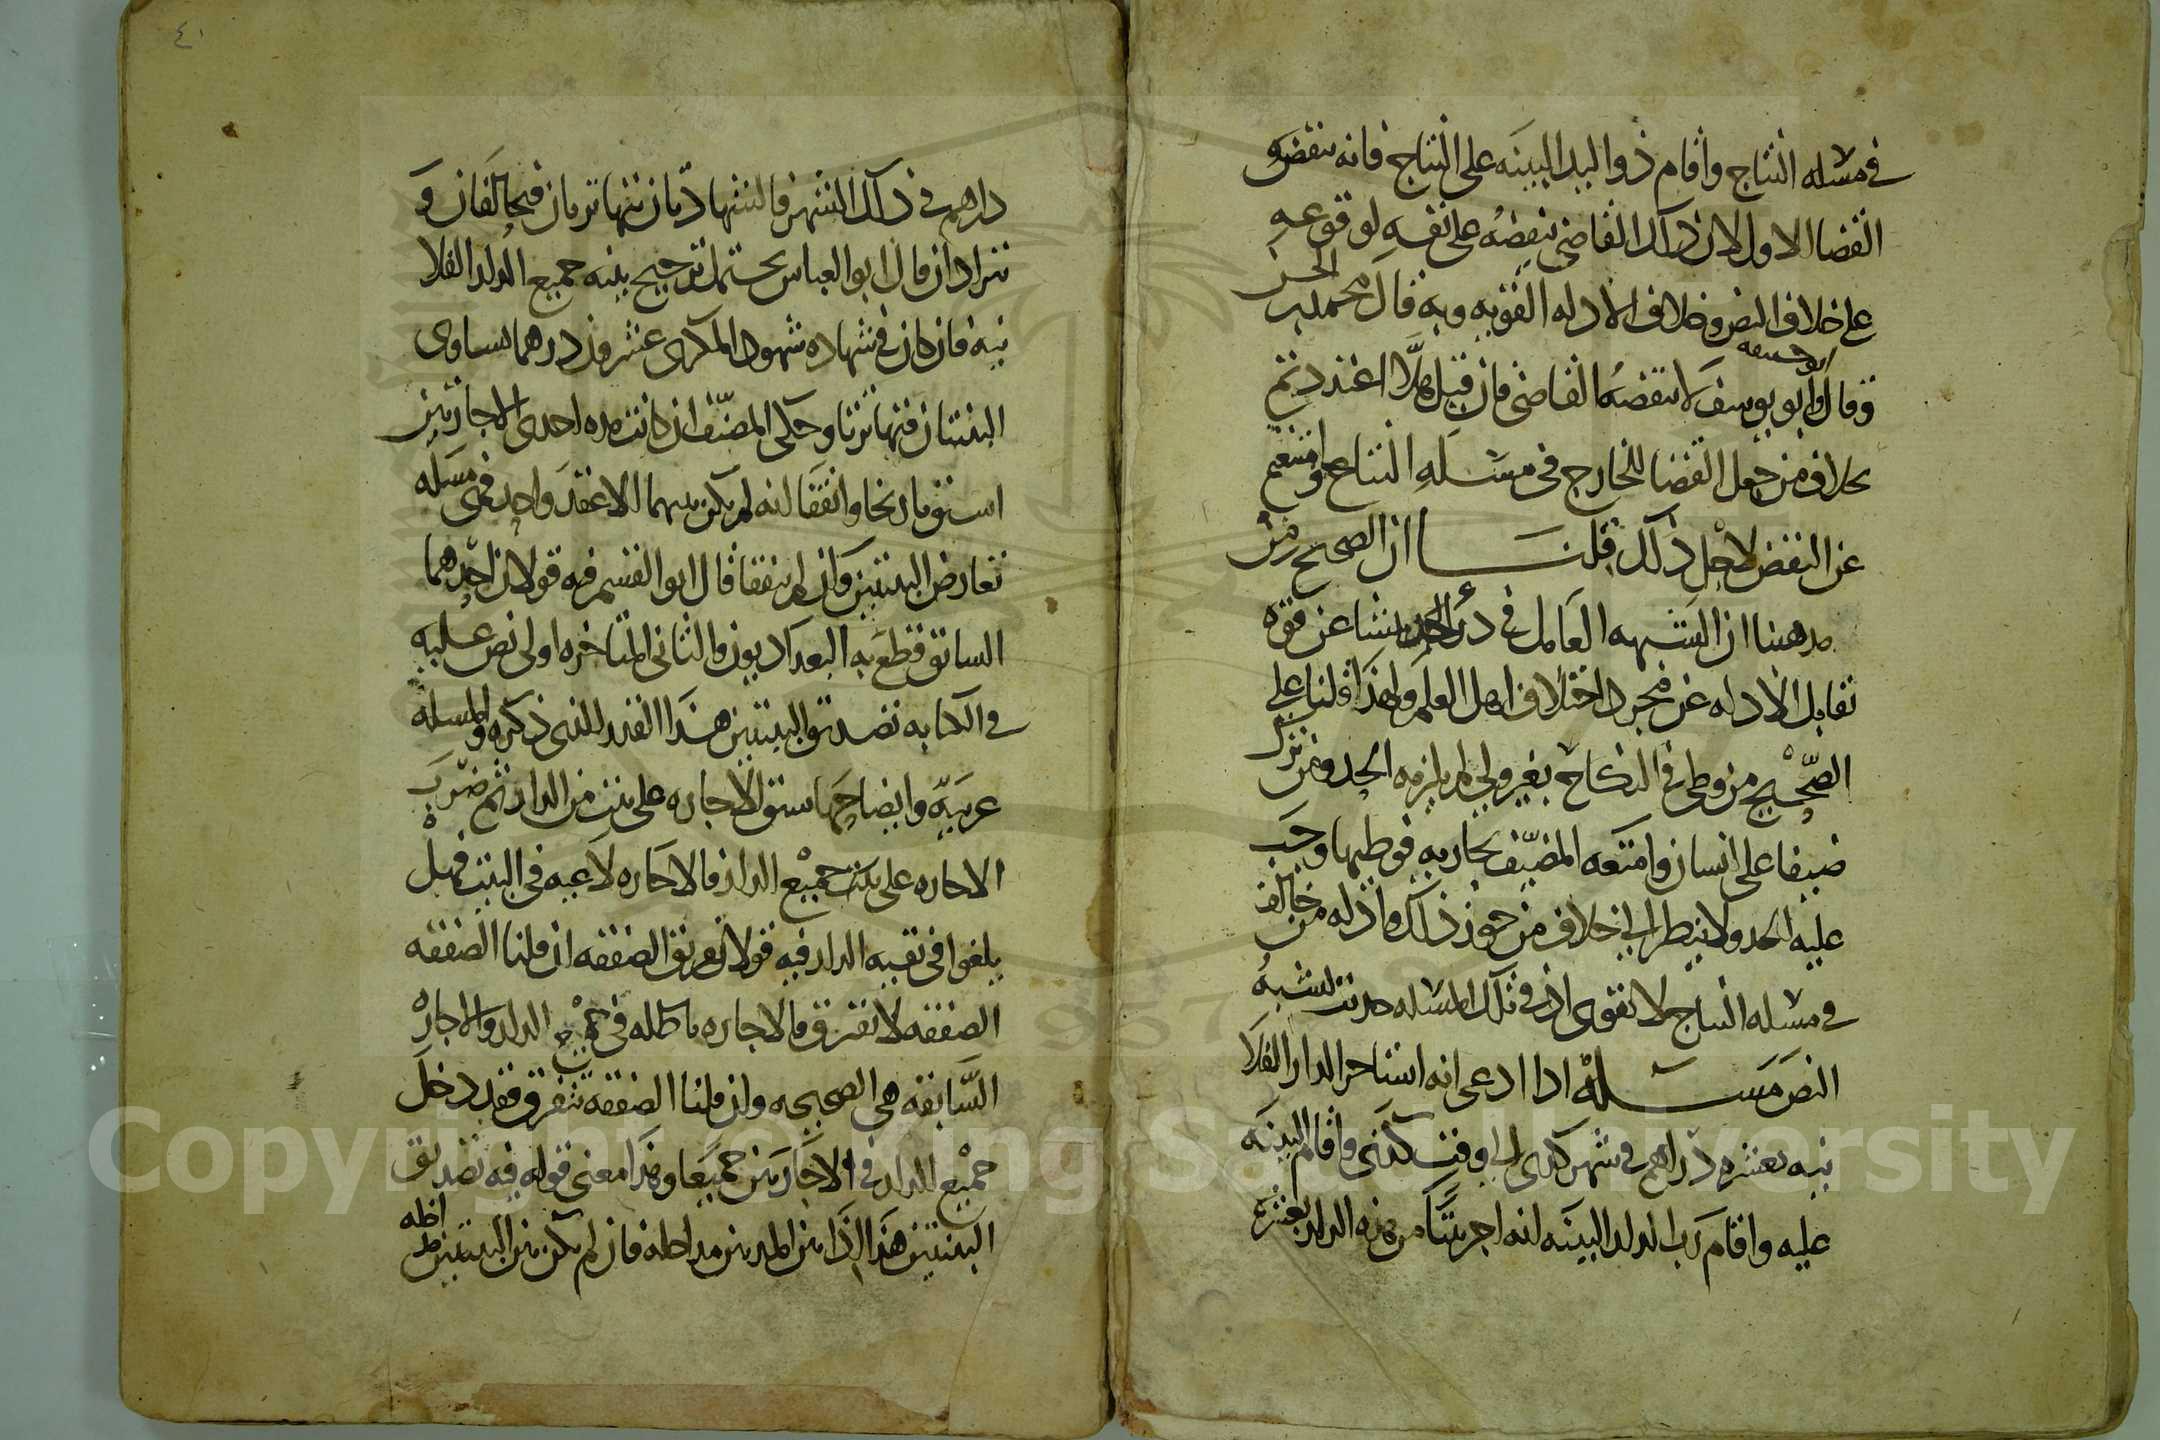 في مسله النتاج واقام ذوا اليد البينه على النتاج فانه ينقض
القضا الاول لان ذلك القاضي ينقضه على نفسه لوقوعه
على خلاف النص وخلاف الادله القويه وبه قال محمد بن الحسن
وقال ابو حنيفه وابو يوسف لا ينقضه القاضي فان قيل هلا اعتددتم
بخلاف من جعل القضا للخارج في مسله النتاج وامتنعتم
عن النقض لاجل ذلك قلنا ان الصحيح من
مذهبنا ان الشبهه العامل في درء الحد ينشا عن قوه
تقابل الادله عن مجرد اختلاف اهل العلم ولهذا قلنا على
الصحيح من وطى في النكاح بغير ولي لم يلزمه الحد ومن نزل
ضيفا على انسان وامتعه المضيف بجاريه فوطيها وجب
عليه الحد ولا ينظر الى خلاف من جوز ذلك وادله من خالف
في مسله النتاج لا تقوى اذ في تلك المسله
النص مسله اذا ادعى انه استاجر الدار الفلا
نيه بعشره دراهم في شهر كذى الى وقت كذى واقام البينه
عليه واقام رب الدار البينه انه اجر بيتا من هذه الدار بعشره
دراهم في ذلك الشهر فالشهادتان تتهاتران فيتحالفان و
يترادان قال ابو العباس يحتمل ترجيح بينه جميع الدار الفلا
نيه فان كان في شهاده شهود المكرى عشرون درهما تساوى
البينتان فتهاترتا وحكى المصنف ان كانت مده احدى الاجارتين
استوى تاريخا واتفقا انه لم يكن بينهما الا عقد واحد فهي مسله
تعارض البينتين وان لم يتفقا قال ابو القسم فيه قولان احدهما
السابق قطع به البغداديون والثاني المتاخره اولى نص عليه
في الكتابه تصدق البينتين هذا القدر الذي ذكره والمسله
عربيه وايضاحها سبق الاجاره على بيت من الدار ثم ضرب
الاجاره على جميع الدار فالاجاره لاغيه في البيت فهل
يلغوا في بقيه الدار فيه قولا تفريق الصفقه ان قلنا الصفقه
الصفقه لا تفترق فالاجاره باطله في جميع الدار والاجاره
السابقه هي الصحيحه وان قلنا الصفقه تتفرق فقد دخل
جميع الدار في الاجارتين جميعا وهذا معنى قوله فيه تصديق
البينتين هذا اذا بين المدتين مداخله فان لم يكن بين البينتين